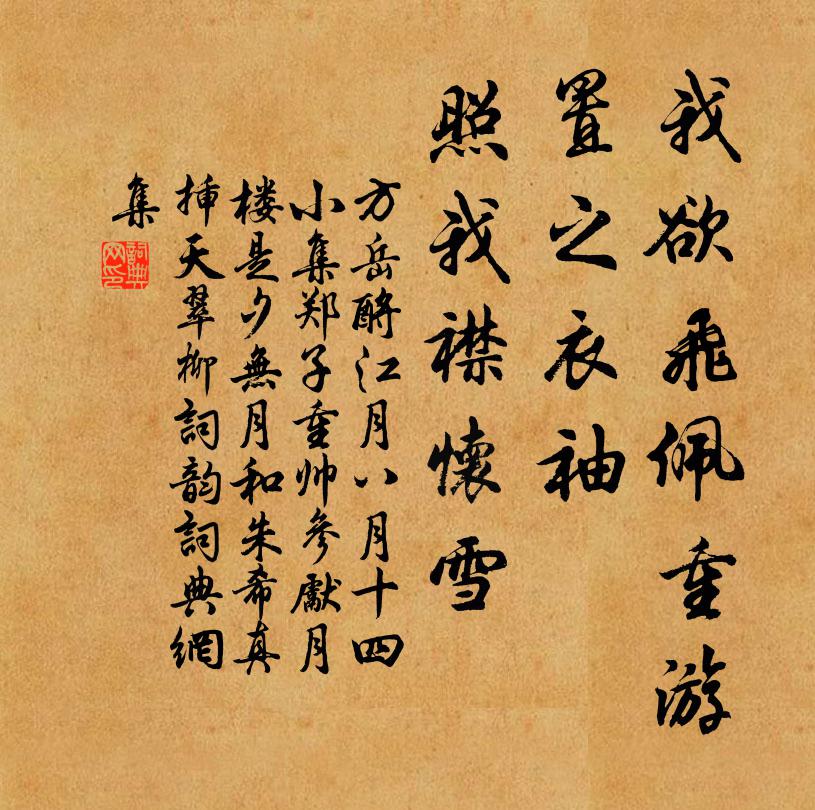 我欲飛佩重游
置之衣袖
照我襟懷雪
方岳酹江月八月十四
小集郑子重帅參獻月
楼是夕無月和朱希真
插天翠柳詞韵詞典網
集
詞典网印